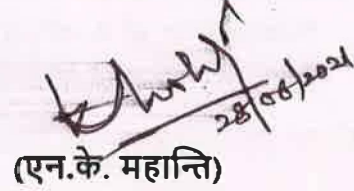 28/06/2021
(एन.के. महान्ति)